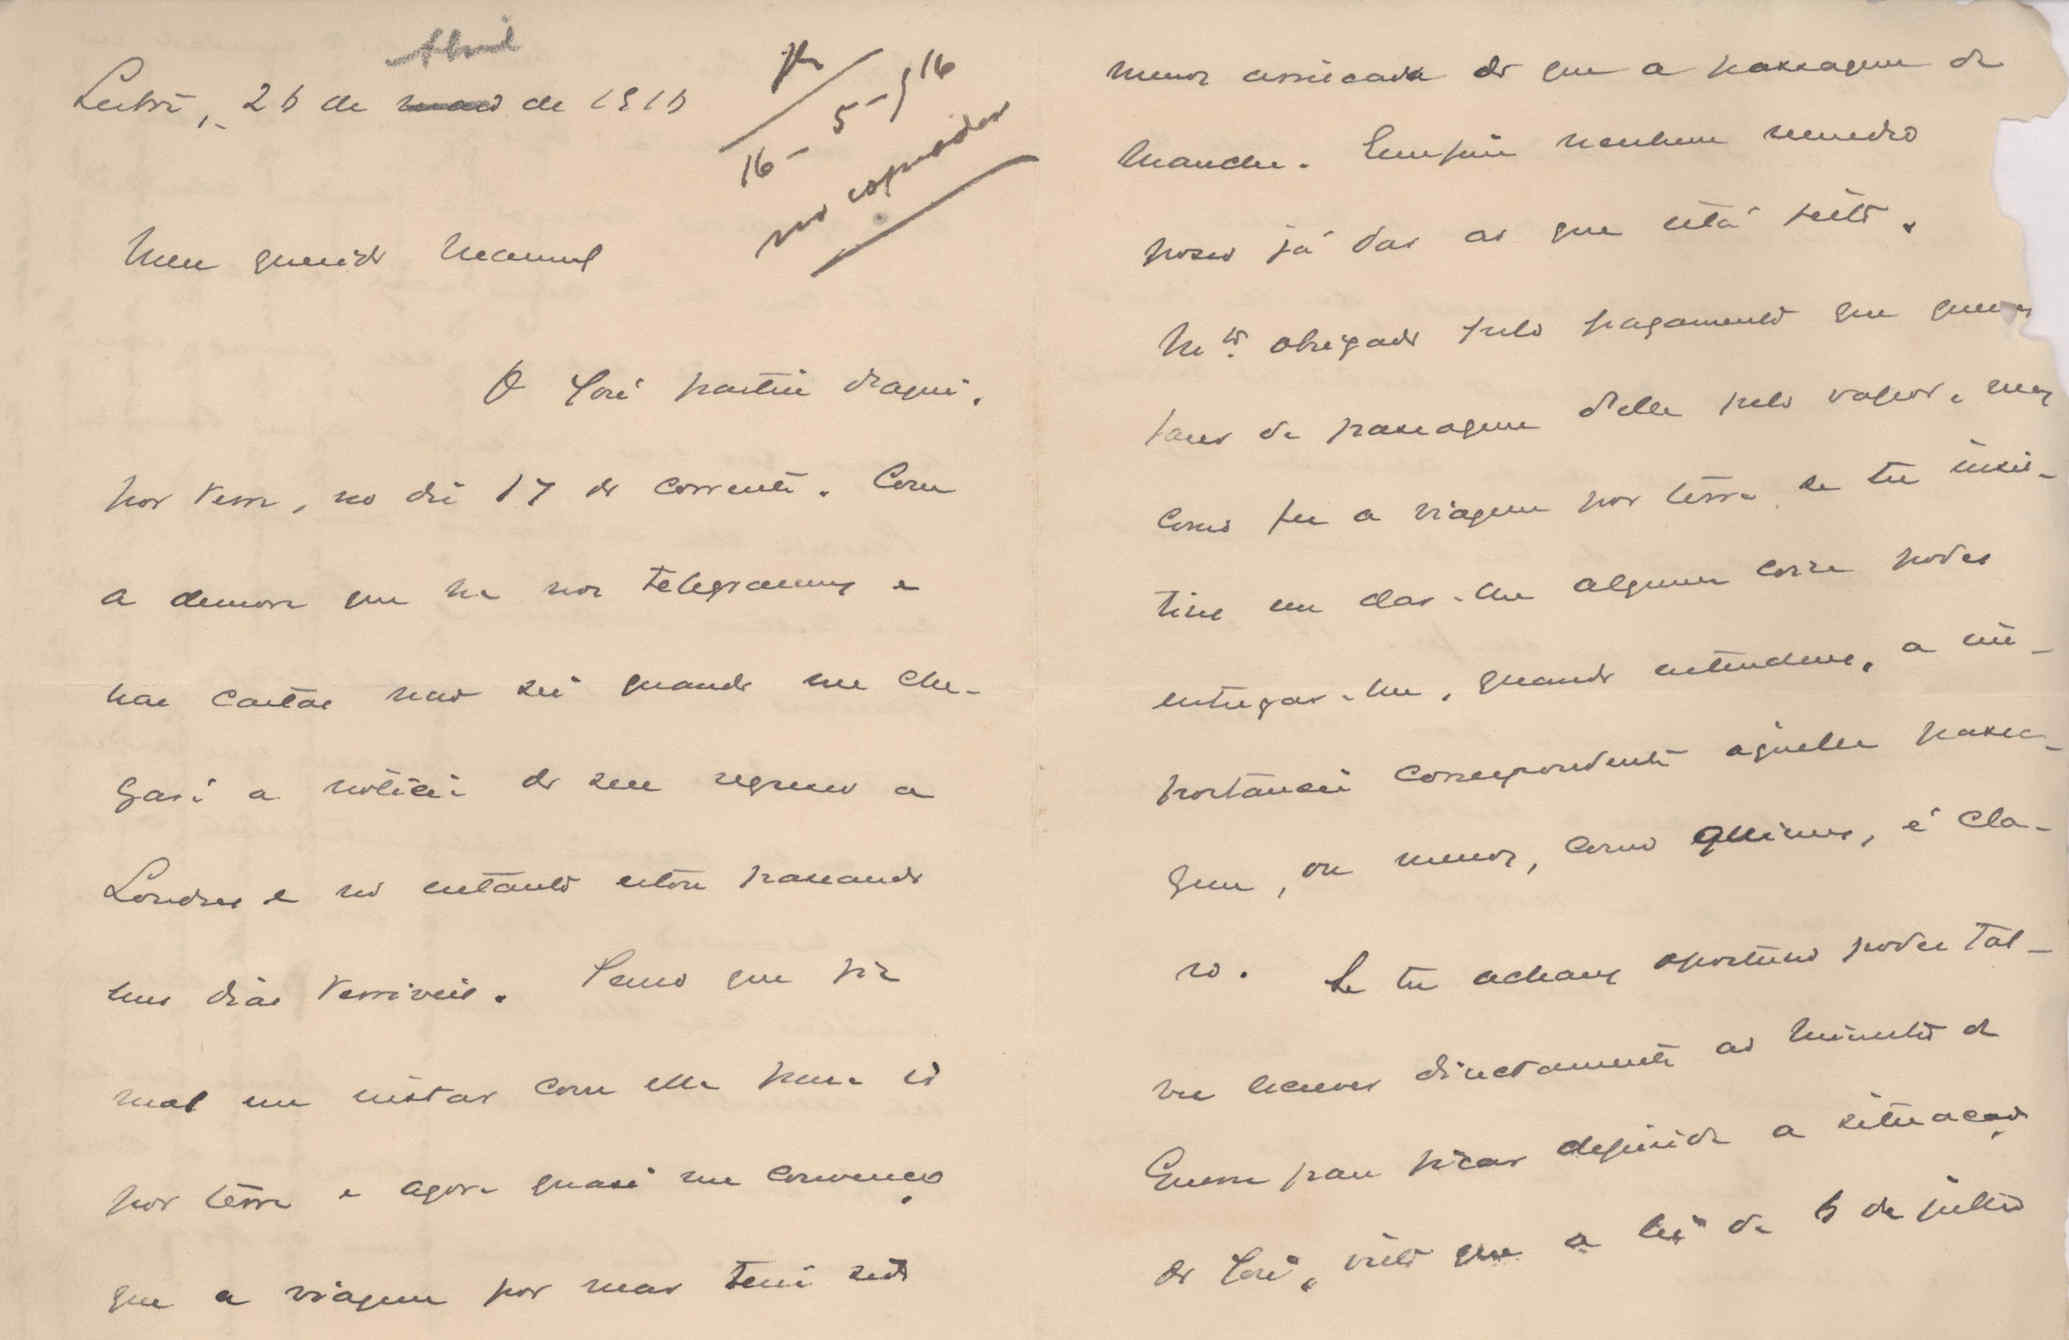 Abril
Leitão, 26 de maio de 1916
16-5-916
no copiador
Meu querido Manuel
O José partiu daqui,
por terra, no dia 17 do corrente. Com
a demora que ha nos telegramas e
nas cartas não sei quando me che-
gará a noticia do seu regresso a
Londres e no entanto estou passando
uns dias terriveis. Temo que fiz
mal em instar com elle para ir
por terra e agora quasi me convenço
que a viagem por mar teria sido
menos arriscada do que a passagem da
Mancha. Emfim nenhum remedio
posso já dar ao que está feito.
Mto. obrigado pelo pagamento que queres
fazer da passagem d'elle pelo vapor, mas
como fez a viagem por terra se tu insis-
tires em dar-lhe alguma coisa podes
entregar-lhe, quando entenderes, a im-
portancia correspondente áquella passa-
gem, ou menos, como quizeres, é cla-
ro. Se tu achares oportuno poder tal-
vez escrever directamente ao Ministro da
Guerra para ficar definida a situação
do José, visto que a lei de 6 de julho